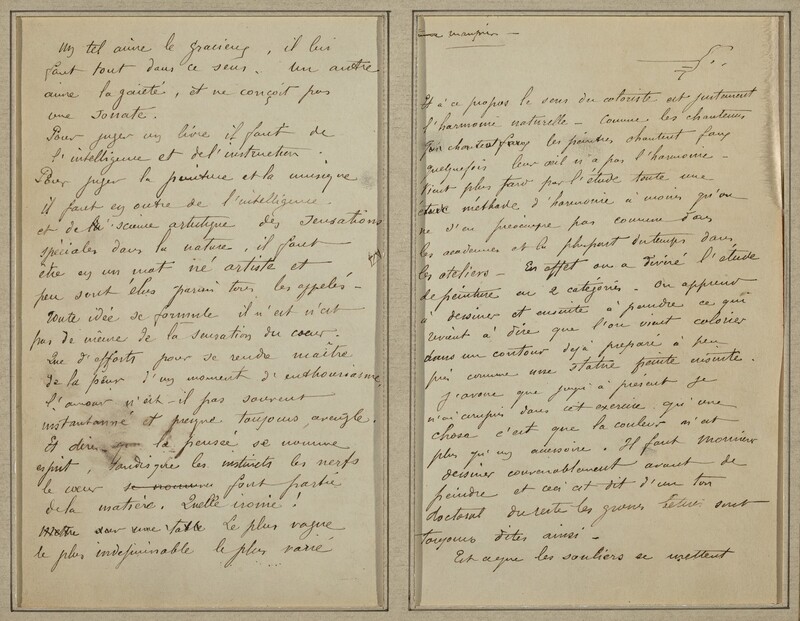 Un tel aime le gracieux, il lui
faut tout dans ce sens. Un autre
aime la gaieté, et ne conçoit pas
une sonate.
Pour juger un livre il faut de
l'intelligence et de l'instruction.
Pour juger la peinture et la musique
il faut en outre de l'intelligence
et de la science artistique des sensations
spéciales dans la nature, il faut
être en un mot né artiste et
peu sont élus parmi tous les appelés -
Toute idée se formule il n'est n'est
pas de même de la sensation du cœur.
Que d'efforts pour se rendre maître
de la peur d'un moment d'enthousiasme.
L'amour n'est-il pas souvent
instantanné et presque toujours aveugle.
Et dire que la pensée se nomme
esprit, tandis que les instincts les nerfs
le cœur se nomme font partie
de la matière. Quelle ironie!
Mettre sur une table Le plus vague
le plus indéfinissable le plus varié
Et à ce propos le sens du coloriste est justement
l'harmonie naturelle - Comme les chanteurs
chantent faux les peintres chantent faux
quelquefois leur œil n'a pas l'harmonie -
Vient plus tard par l'étude toute une
étude méthode d'harmonie à moins qu'on
ne s'en préoccupe pas comme dans
les académies et la plupart du temps dans
les ateliers - En effet on a divisé l'étude
de peinture en 2 catégories. On apprend
à dessiner et ensuite à peindre ce qui
revient à dire que l'on vient colorier
dans un contour déjà préparé à peu
près comme une statue peinte ensuite.
J'avoue que jusqu'à présent je
n'ai compris dans cet exercice qu'une
chose c'est que la couleur n'est
plus qu'un accessoire. Il faut Monsieur
dessiner convenablement avant de
peindre et ceci est dit d'un ton
doctoral du reste les grosses bêtises sont
toujours dites ainsi -
Est ce que les souliers se mettent